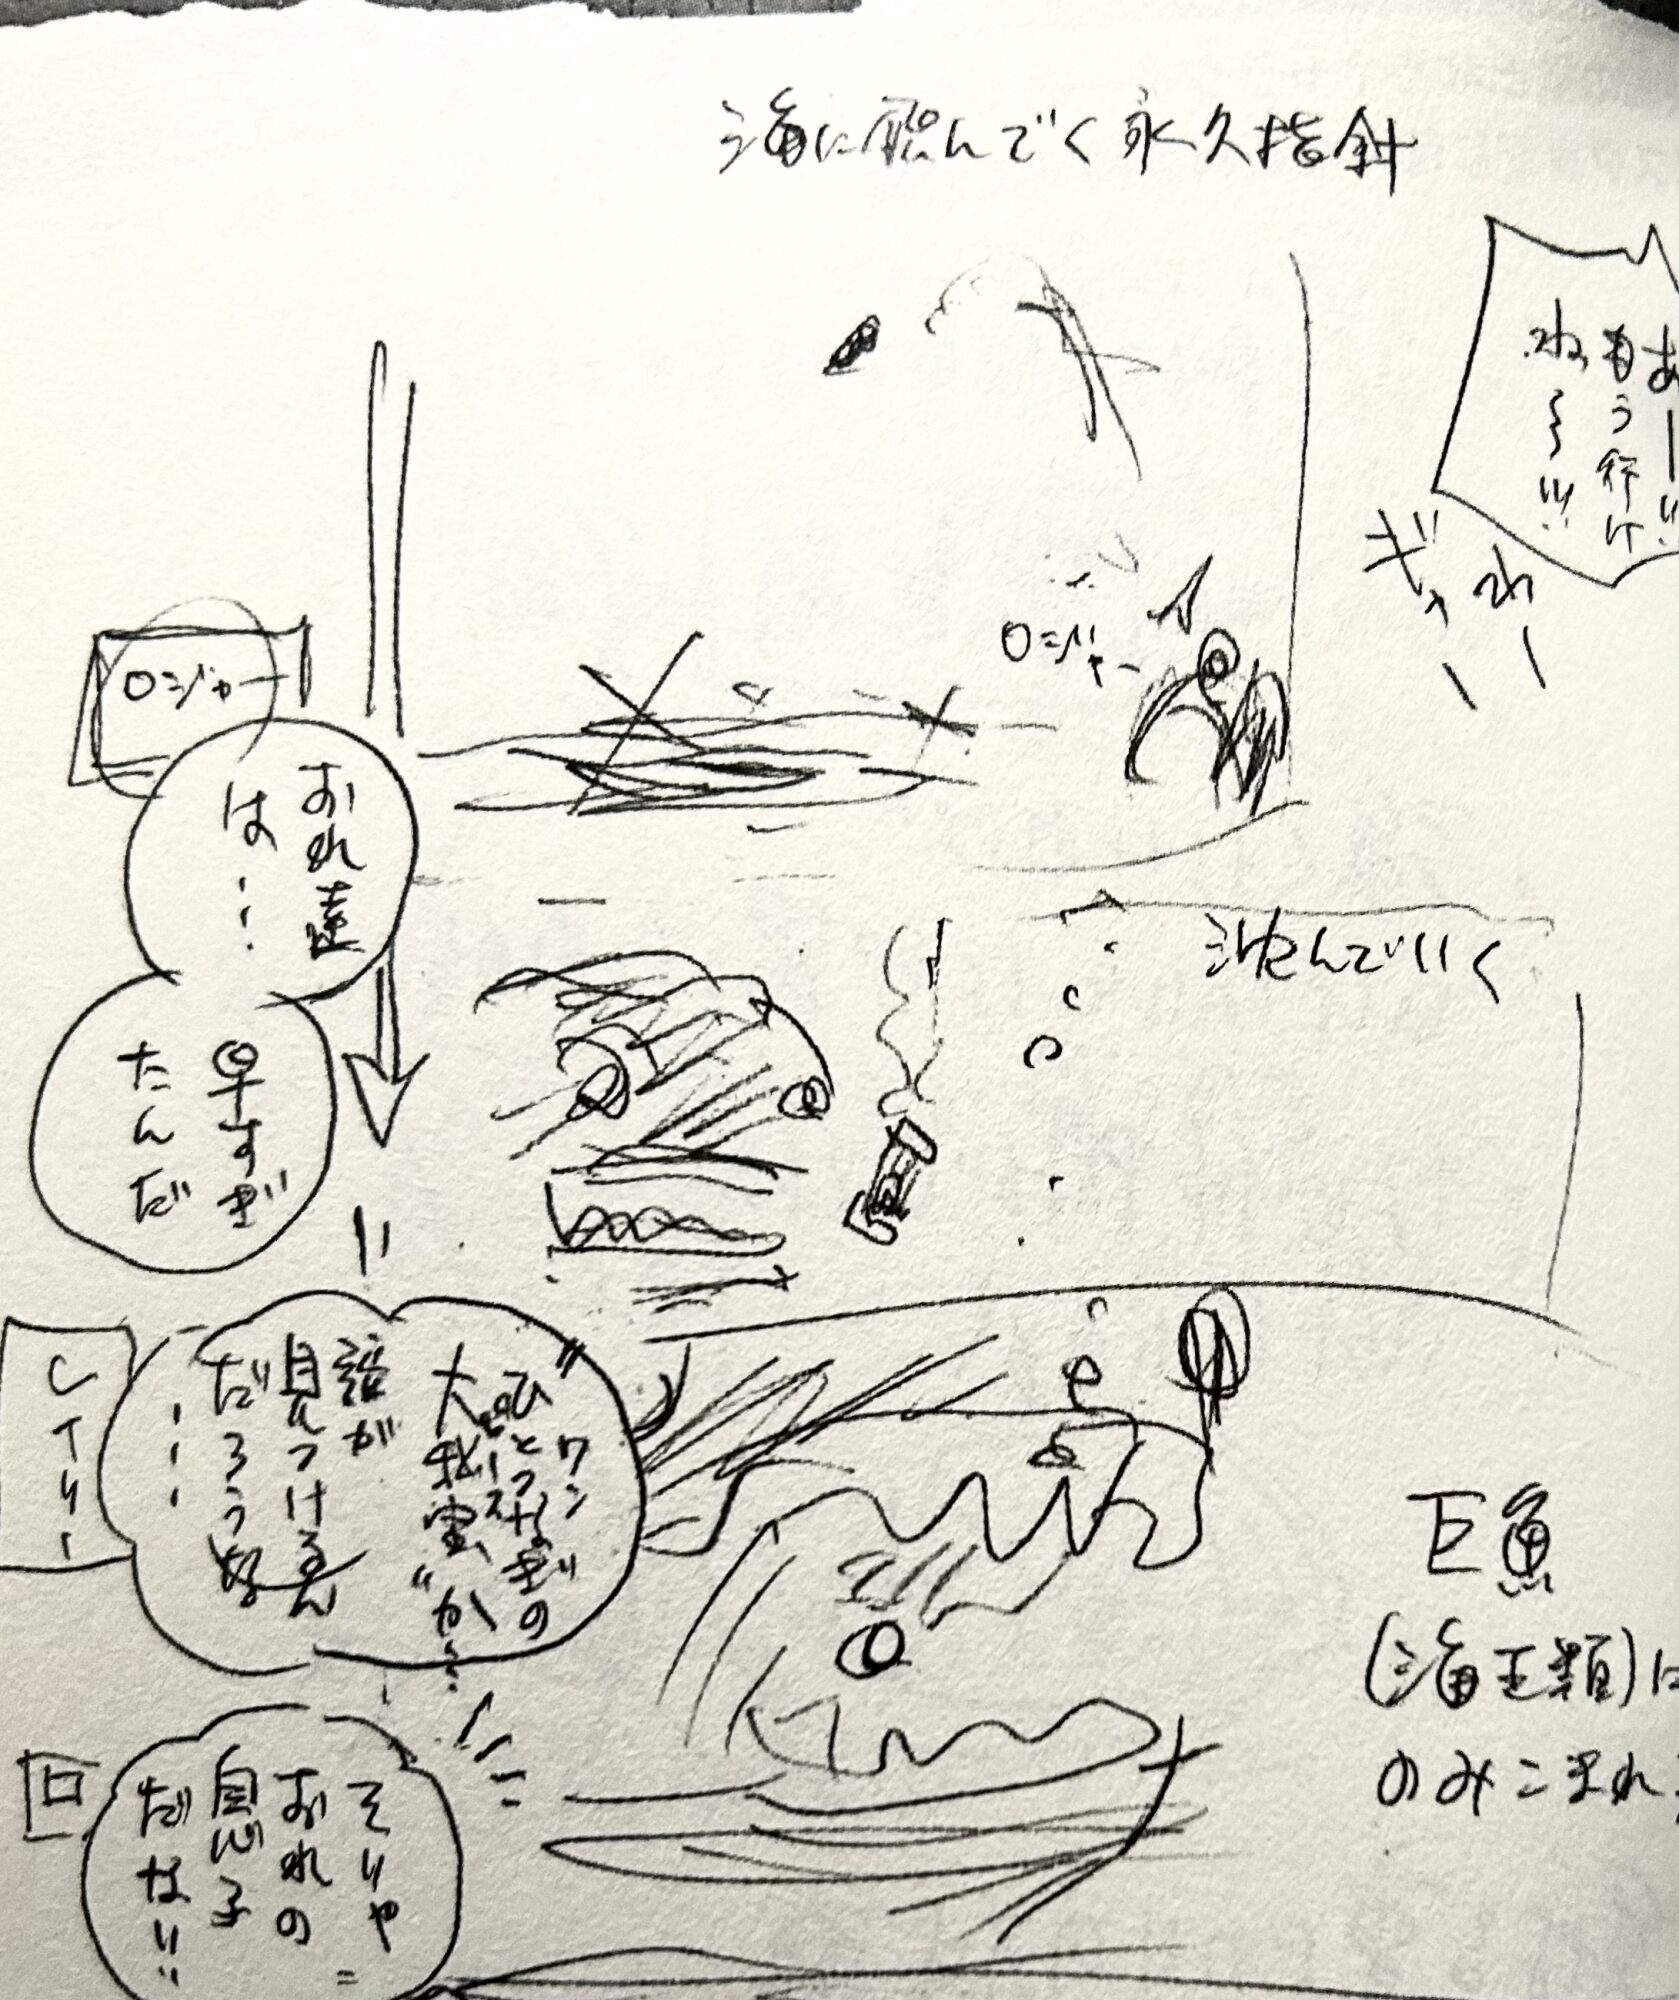 海に飛んでく永久指針
あー!!
もう行け
ねェ〜!!!
ギャ
わ
ー
ー
ロジャー
ロジャー
おれ達
は…
早すぎ
たんだ
沈んでいく
ワン
ピース
"ひとつなぎの
大秘宝"か…
誰が
見つけるん
だろうな
………
レイリー
巨魚
(海王類)に
のみこまれ
そりゃ
おれの
息子
だな!!
ロ